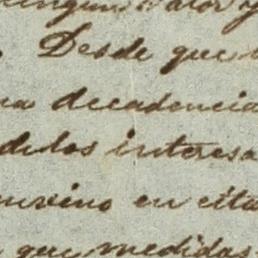 ningun valor y
Desde que
decadencia
de los interesa
en esta
que medidas